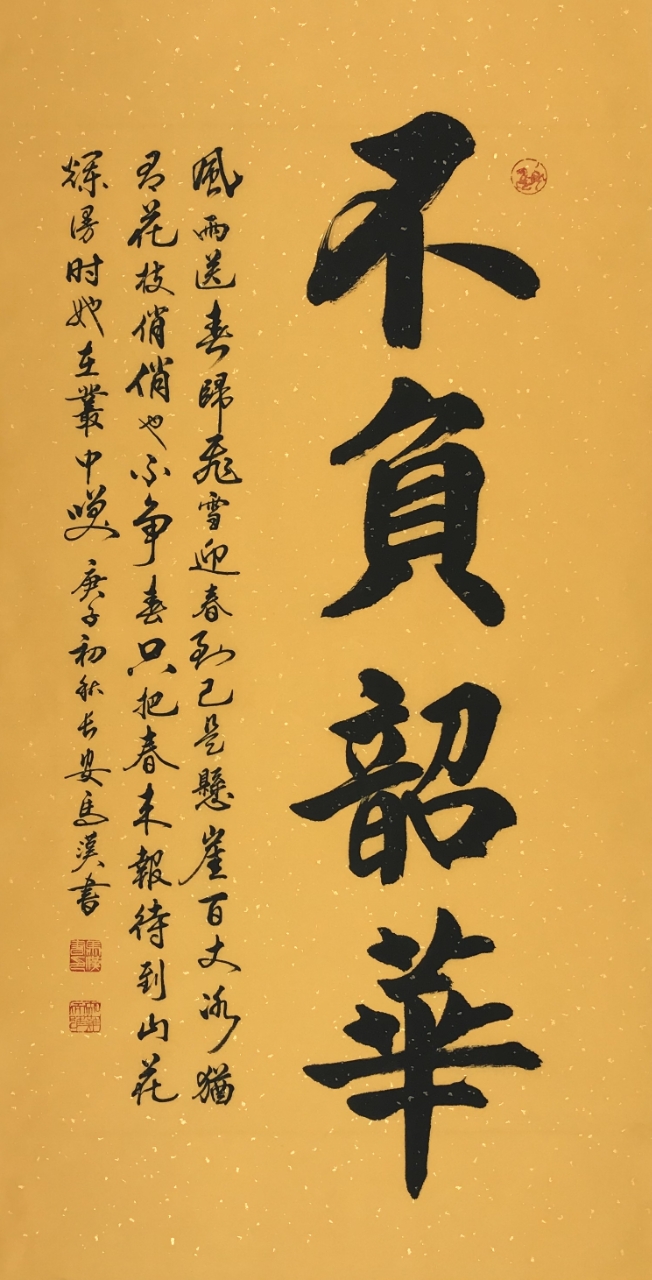 不负韶華
風雨送春歸飛雪迎春到已是懸崖百丈冰猶
有花枝俏俏也不争春只把春来報待到山花
爛漫时她在叢中笑 庚子初秋长安馬漢書